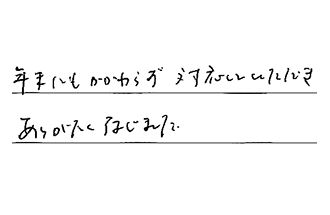 年末にもかかわらず 対応していただき
ありがたく存じました.